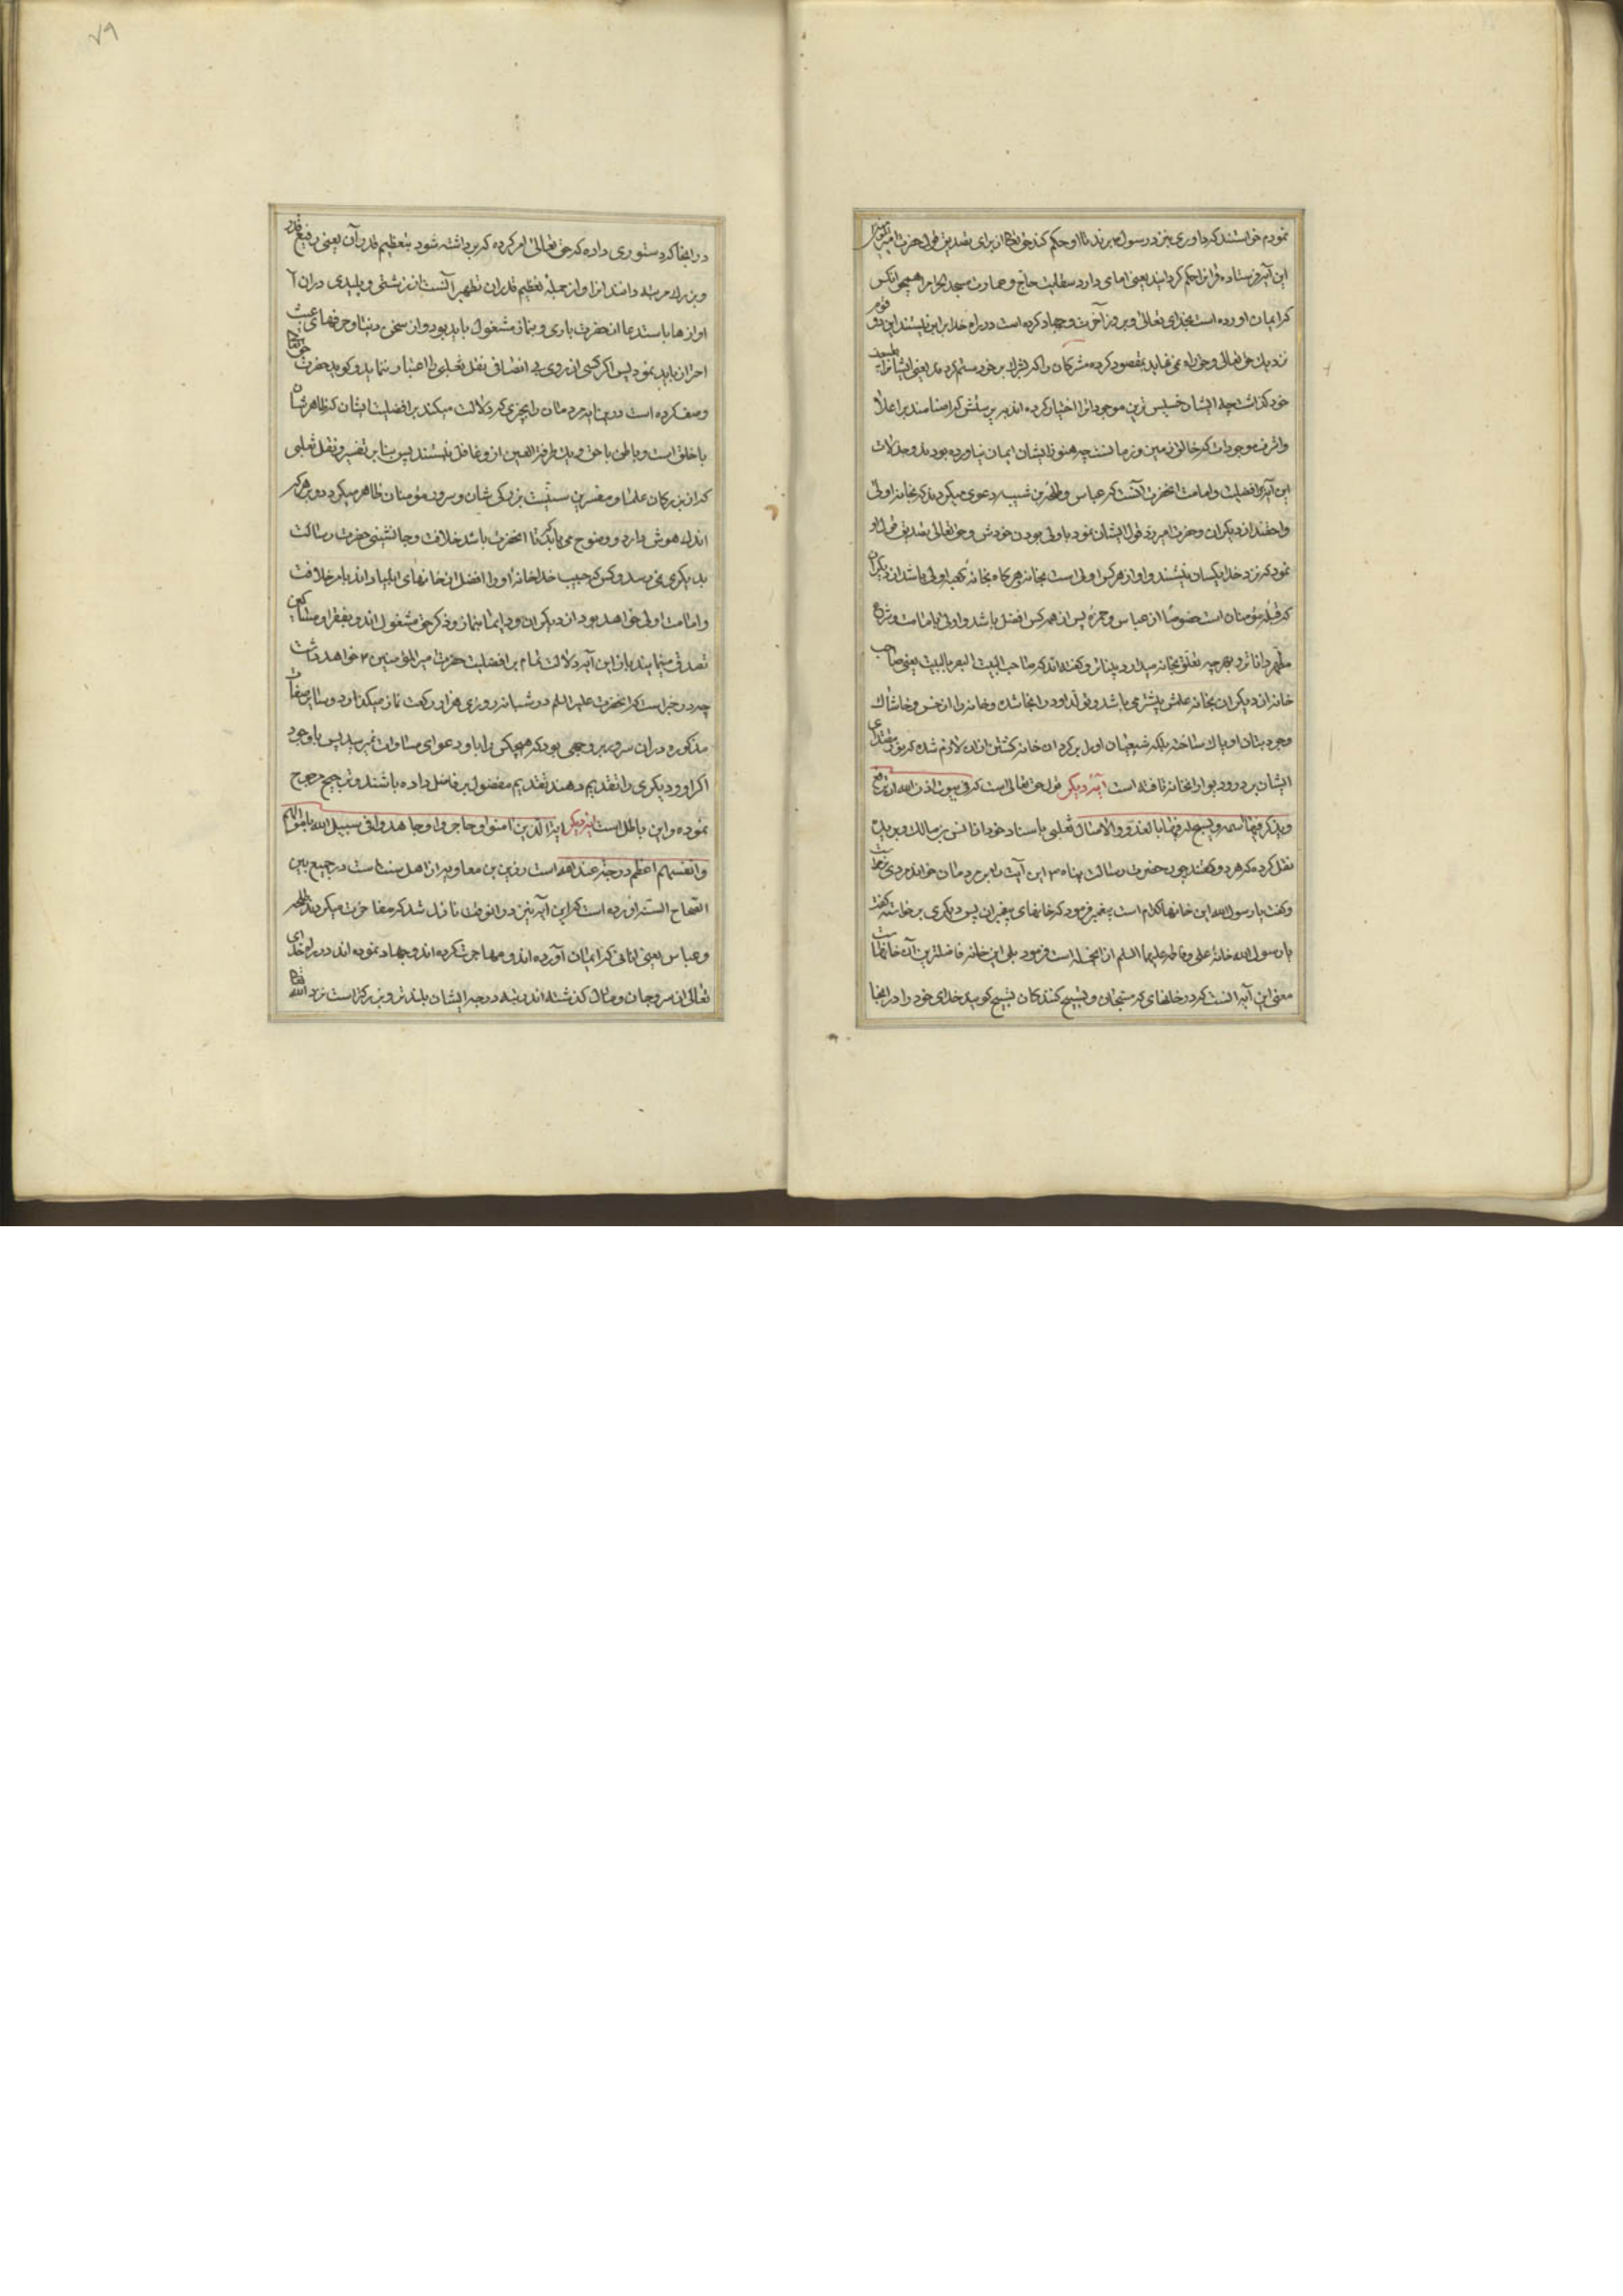 نمودم خواستند که داوری بنزد رسول برند تا او حکم کند حق تعالی از برای تصدیق قول حضرت امیر
این آیه فرستاده و قرانرا حکم گردانید یعنی امای دارد سقایت حاج و عمارت مسجد الحرام را همچو انکس
که ایمان اورده است بخدای تعالی و بروز آخرت و جهاد کرده است در راه خدا برابر نیستند این دو قوم
نزدیک حق تعالی و حق راه نمی نماید بمقصود گروه مشرکان را که بشرک بر خود ستم کردند یعنی ایشانرا
خود گذاشت چه ایشان خسیس ترین موجودات را اختیار کرده اند بر پرستش که اصنامند بر اعلا
و اشرف موجودات که خالق زمین و زمانست چه هنوز ایشان ایمان نیاورده بودند وجه دلالت
این آیه بر افضلیت و امامت انحضرت آنست که عباس و طلحة بن شیبه دعوی میکردند که بخانه اولی
و احقند از دیگران و حضرت امیر رد قول ایشان نمود باولی بودن خودش و حق تعالی تصدیق قول او
نمود که نزد خدا یکسان نیستند و او از هر کس اولی است بخانه هر گاه بخانه کعبه اولی باشد از دیگران
که قبله مؤمنان است خصوصا از عباس و حمزه پس از همه کس افضل باشد و اولی بامامت و شرع
مطهر داناتر و بهر چه تعلق بخانه میدارد بیناتر و گفته اند که صاحب البیت ابصر بالبیت یعنی صاحب
خانه از دیگران بخانه علمش بیشتر می باشد و تولد او در انجا شده و خانه را از خس و خاشاک
وجود بتان او پاک ساخته بلکه شیعیان او را بر گرد ان خانه گشتن ازان لازم شده که نور مقتدای
ایشان بر در و دیوار انخانه تافته است آیه دیگر قول حق تعالی است که فی بیوت اذن الله ان ترفع
ویذکر فیها اسمه ویسبح له فیها بالغدو والاصال ثعلبی باسناد خود از انس بن مالک و بریده
نقل کرده که هر دو گفتند چون حضرت رسالت پناه این آیت را بر مردمان خواند مردی برخاست
وگفت یا رسول الله این خانها کدام است پیغمبر فرمود که خانهای پیغمبران پس دیگری برخاست گفت
یا رسول الله خانه علی و فاطمه علیهما السلم از انجمله است فرمود بلی این خانه فاضلترین آن خانهاست
معنی این آیه انست که در خانهای که مسبحان و تسبیح کنندگان تسبیح گویند خدای خود را در انجا
۷۹
در انجا که دستوری داده که حق تعالی امر کرده که برداشته شود بتعظیم قدر آن یعنی رفیع قدر
و بزرگ مرتبه دانند انرا و از جمله تعظیم قدر ان تطهیر آنست از زشتی و پلیدی دران
اوازها باستدعا از حضرت باری و بنماز مشغول باید بود و از سخن دنیا و حرفهای عبث
احتراز باید نمود پس اگر کسی از روی بی انصافی نقل ثعلبی را اعتبار ننماید و گوید حضرت حق تعالی
وصف کرده است درین آیه مردمان را بچیزی که دلالت میکند بر افضلیت ایشان که ظاهر شان
با خلق است و باطن با حق و یک طرفة العین از و غافل نیستند پس بنا بر تفسیر و نقل ثعلبی
که از بزرگان علما و مفسرین سنیست بزرگی شان و سروری مؤمنان ظاهر میگردد و بر هر که
اندک هوش دارد وضوح می یابد که تا انحضرت باشد خلافت و جانشینی حضرت رسالت
بدیگری نمی رسد و کسی که حبیب خدا خانه او را افضل از خانهای انبیا داند بامر خلافت
و امامت اولی خواهد بود از دیگران و دایما بنماز و ذکر حق مشغول اند و بفقرا و مساکین
تصدق مینمایند باز این آیه دلالت تمام بر افضلیت حضرت امیر المؤمنین خواهد داشت
چه در خبر است که انحضرت علیه السلم در شبانه روزی هزار رکعت نماز میگذارد و سایر صفات
مذکوره دران سرور بر وجهی بود که هیچکس را با او دعوای مساوات نمیرسید پس با وجود
اگر او دیگری را تقدیم دهند تقدیم مفضول بر فاضل داده باشند و ترجیح مرجوح
نموده و این باطل است آیه دیگر ایة الذین امنوا وهاجروا وجاهدوا فی سبیل الله باموالهم
وانفسهم اعظم درجة عند الله است رزین بن معاویه از اهل سنت است در جمع بین
الصحاح السته اورده است که این آیه نیز در انوقت نازل شد که مفاخرت میکردند طلحه
و عباس یعنی انانی که ایمان آورده اند و مهاجرت کرده اند و جهاد نموده اند در راه خدای
تعالی از سر و جان و مال گذشته اند رتبه و درجه ایشان بلندتر و بزرگتر است نزد الله تعالی